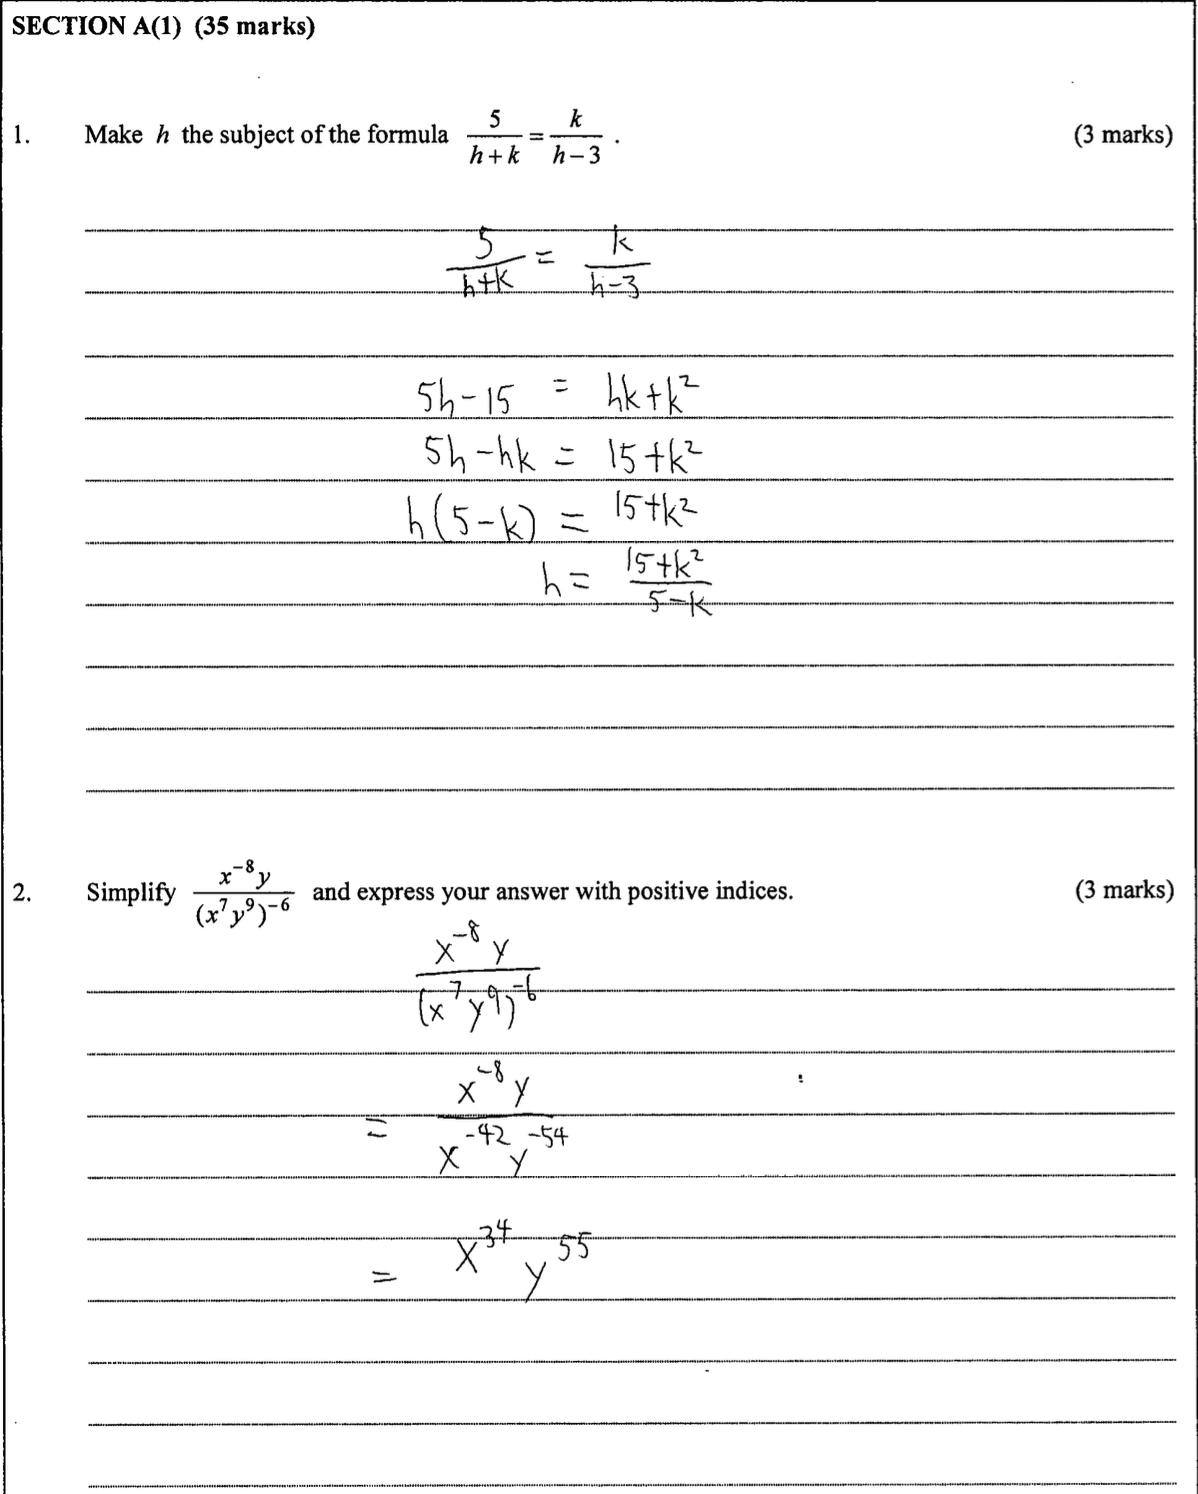 SECTION A(1) (35 marks)
1. Make h the subject of the formula 5/(h+k) = k/(h−3) . (3 marks)
5/(h+k) = k/(h−3)
5h−15 = hk+k²
5h−hk = 15+k²
h(5−k) = 15+k²
h = (15+k²)/(5−k)
2. Simplify x⁻⁸y/(x⁷y⁹)⁻⁶ and express your answer with positive indices. (3 marks)
x⁻⁸y/(x⁷y⁹)⁻⁶
= x⁻⁸y/(x⁻⁴²y⁻⁵⁴)
= x³⁴y⁵⁵